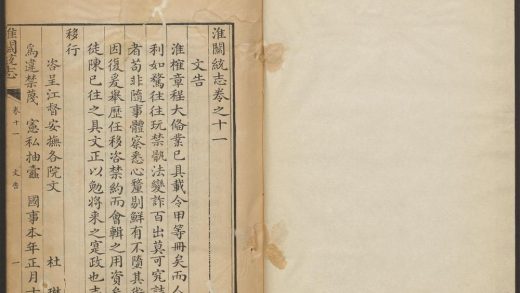 淮關統志卷之十一
文告
淮榷章程大備業已具載令甲等冊矣而人
利如騖往往玩禁骫法變詐百出莫可究詰
者苟非隨事體察悉心釐剔鮮有不墮其術
因復爰舉歷任移咨禁約而會輯之用資
徒陳已往之具文正以勉將來之寔政也志
移行
咨呈江督安撫各院文 杜琳
為違禁蔑憲私抽蠹國事本年正月十
淮關統志
卷十一
文告
一